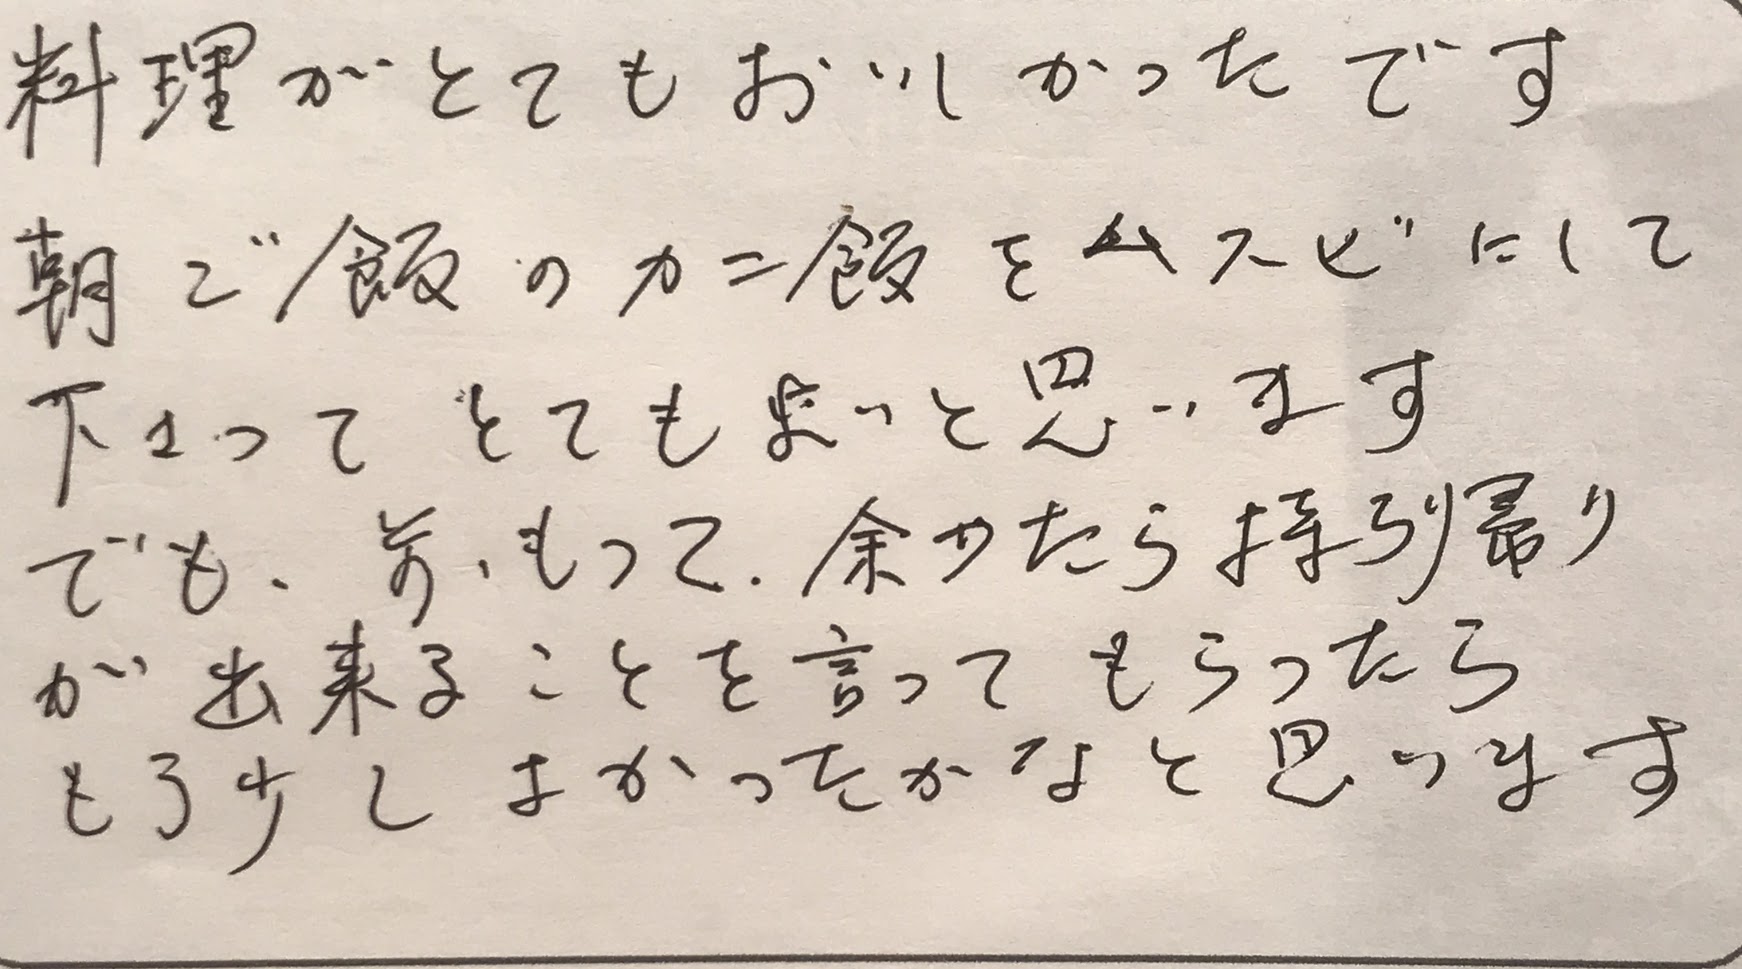 料理がとてもおいしかったです
朝ご飯のカニ飯をムスビにして
下さってとてもよいと思います
でも、前、もって、余ったら持ち帰り
が出来ることを言ってもらったら
もう少しよかったかなと思います